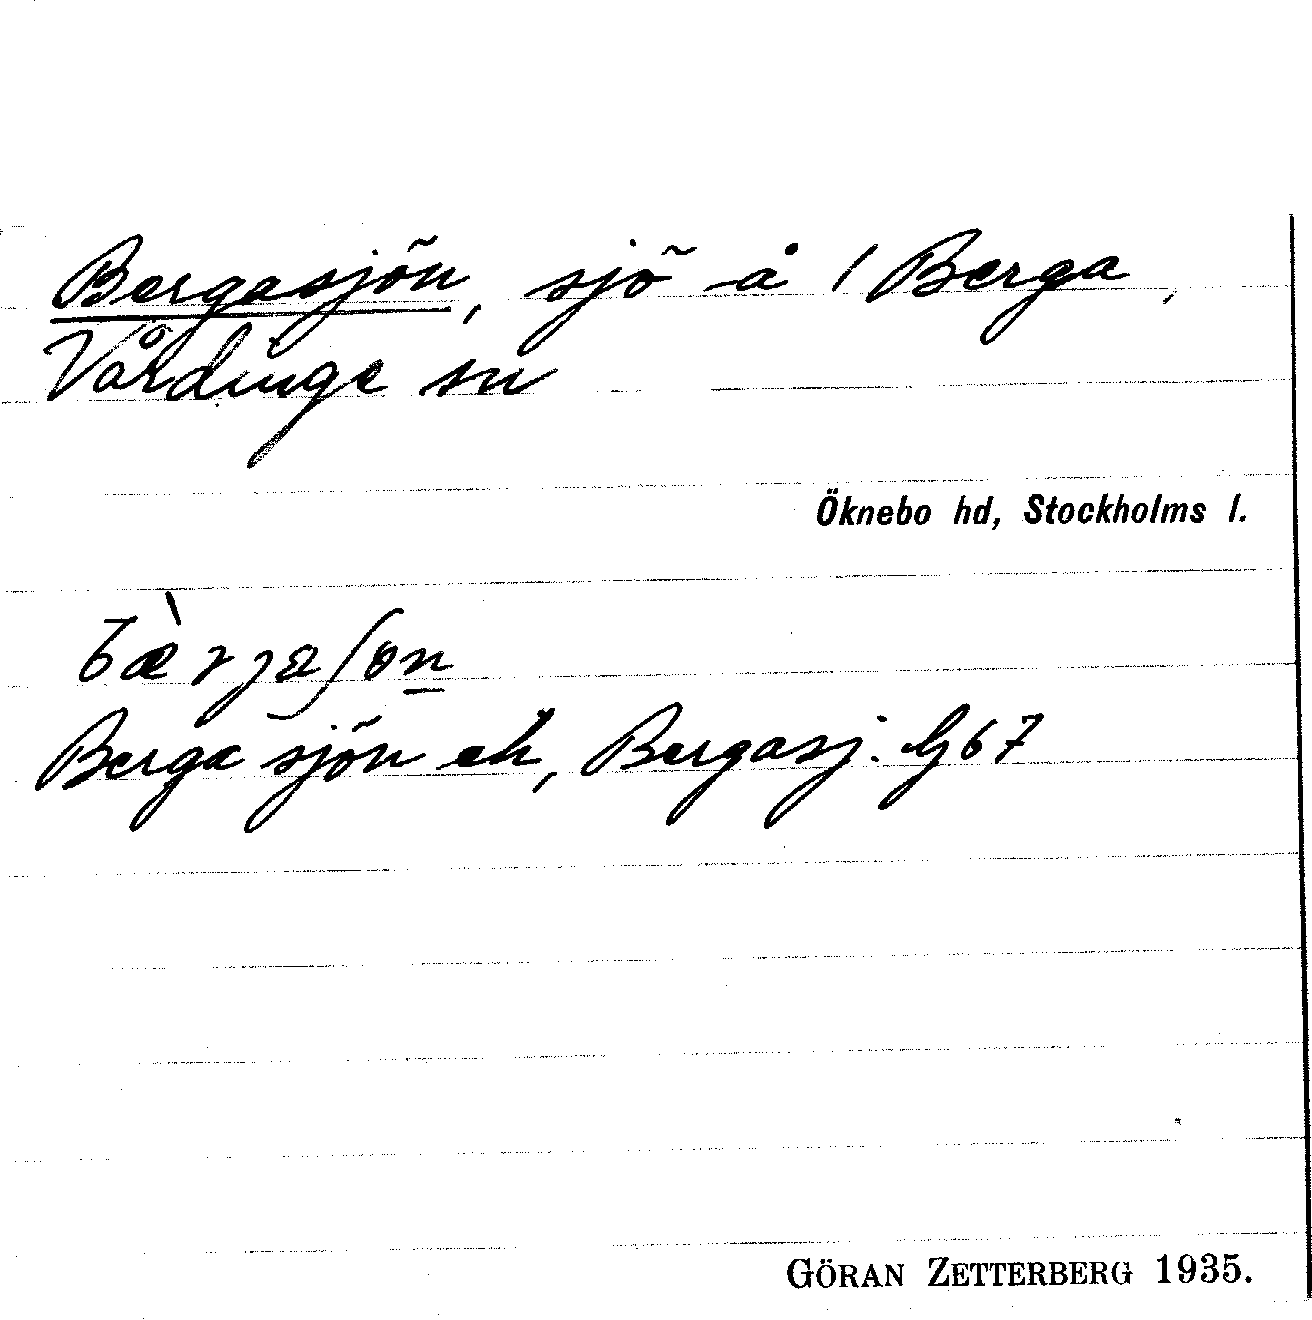 Bergasjön, sjö å 1 Berga,
Vårdinge sn
Öknebo hd, Stockholms l.
bæ̀rjaʃon
Berga sjön ek, Bergasj. Gj 67
GÖRAN ZETTERBERG 1935.